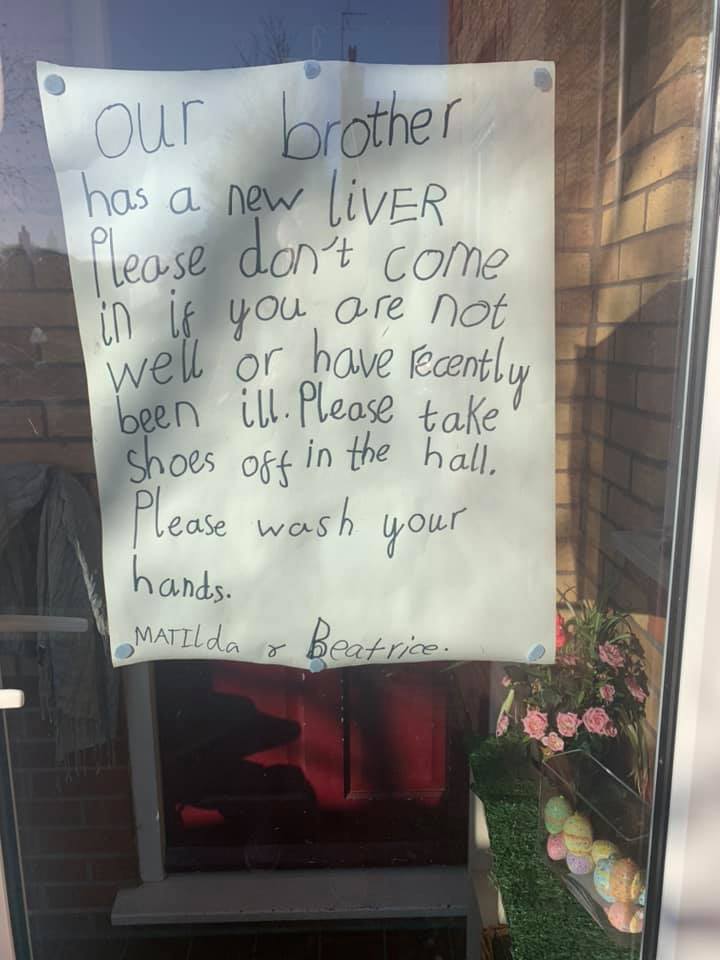 our brother
has a new liVER
Please don't come
in if you are not
well or have recently
been ill. Please take
shoes off in the hall.
Please wash your
hands.
MATIlda & Beatrice.